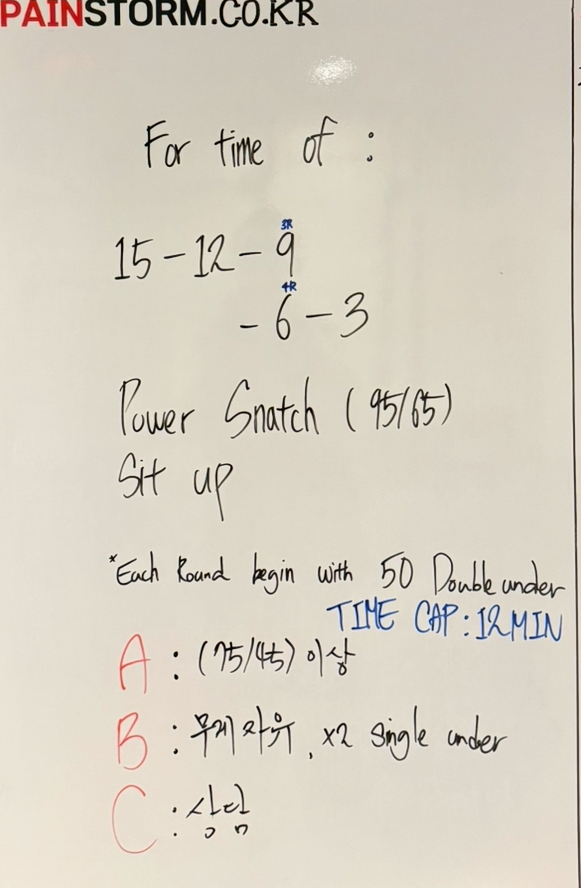 PAINSTORM.CO.KR
For time of :
3R
15-12-9
4R
-6-3
Power Snatch (95/65)
Sit up
*Each Round begin with 50 Double under
TIME CAP : 12 MIN
A : (75/45) 이상
B : 무게자유, x2 single under
C : 상담